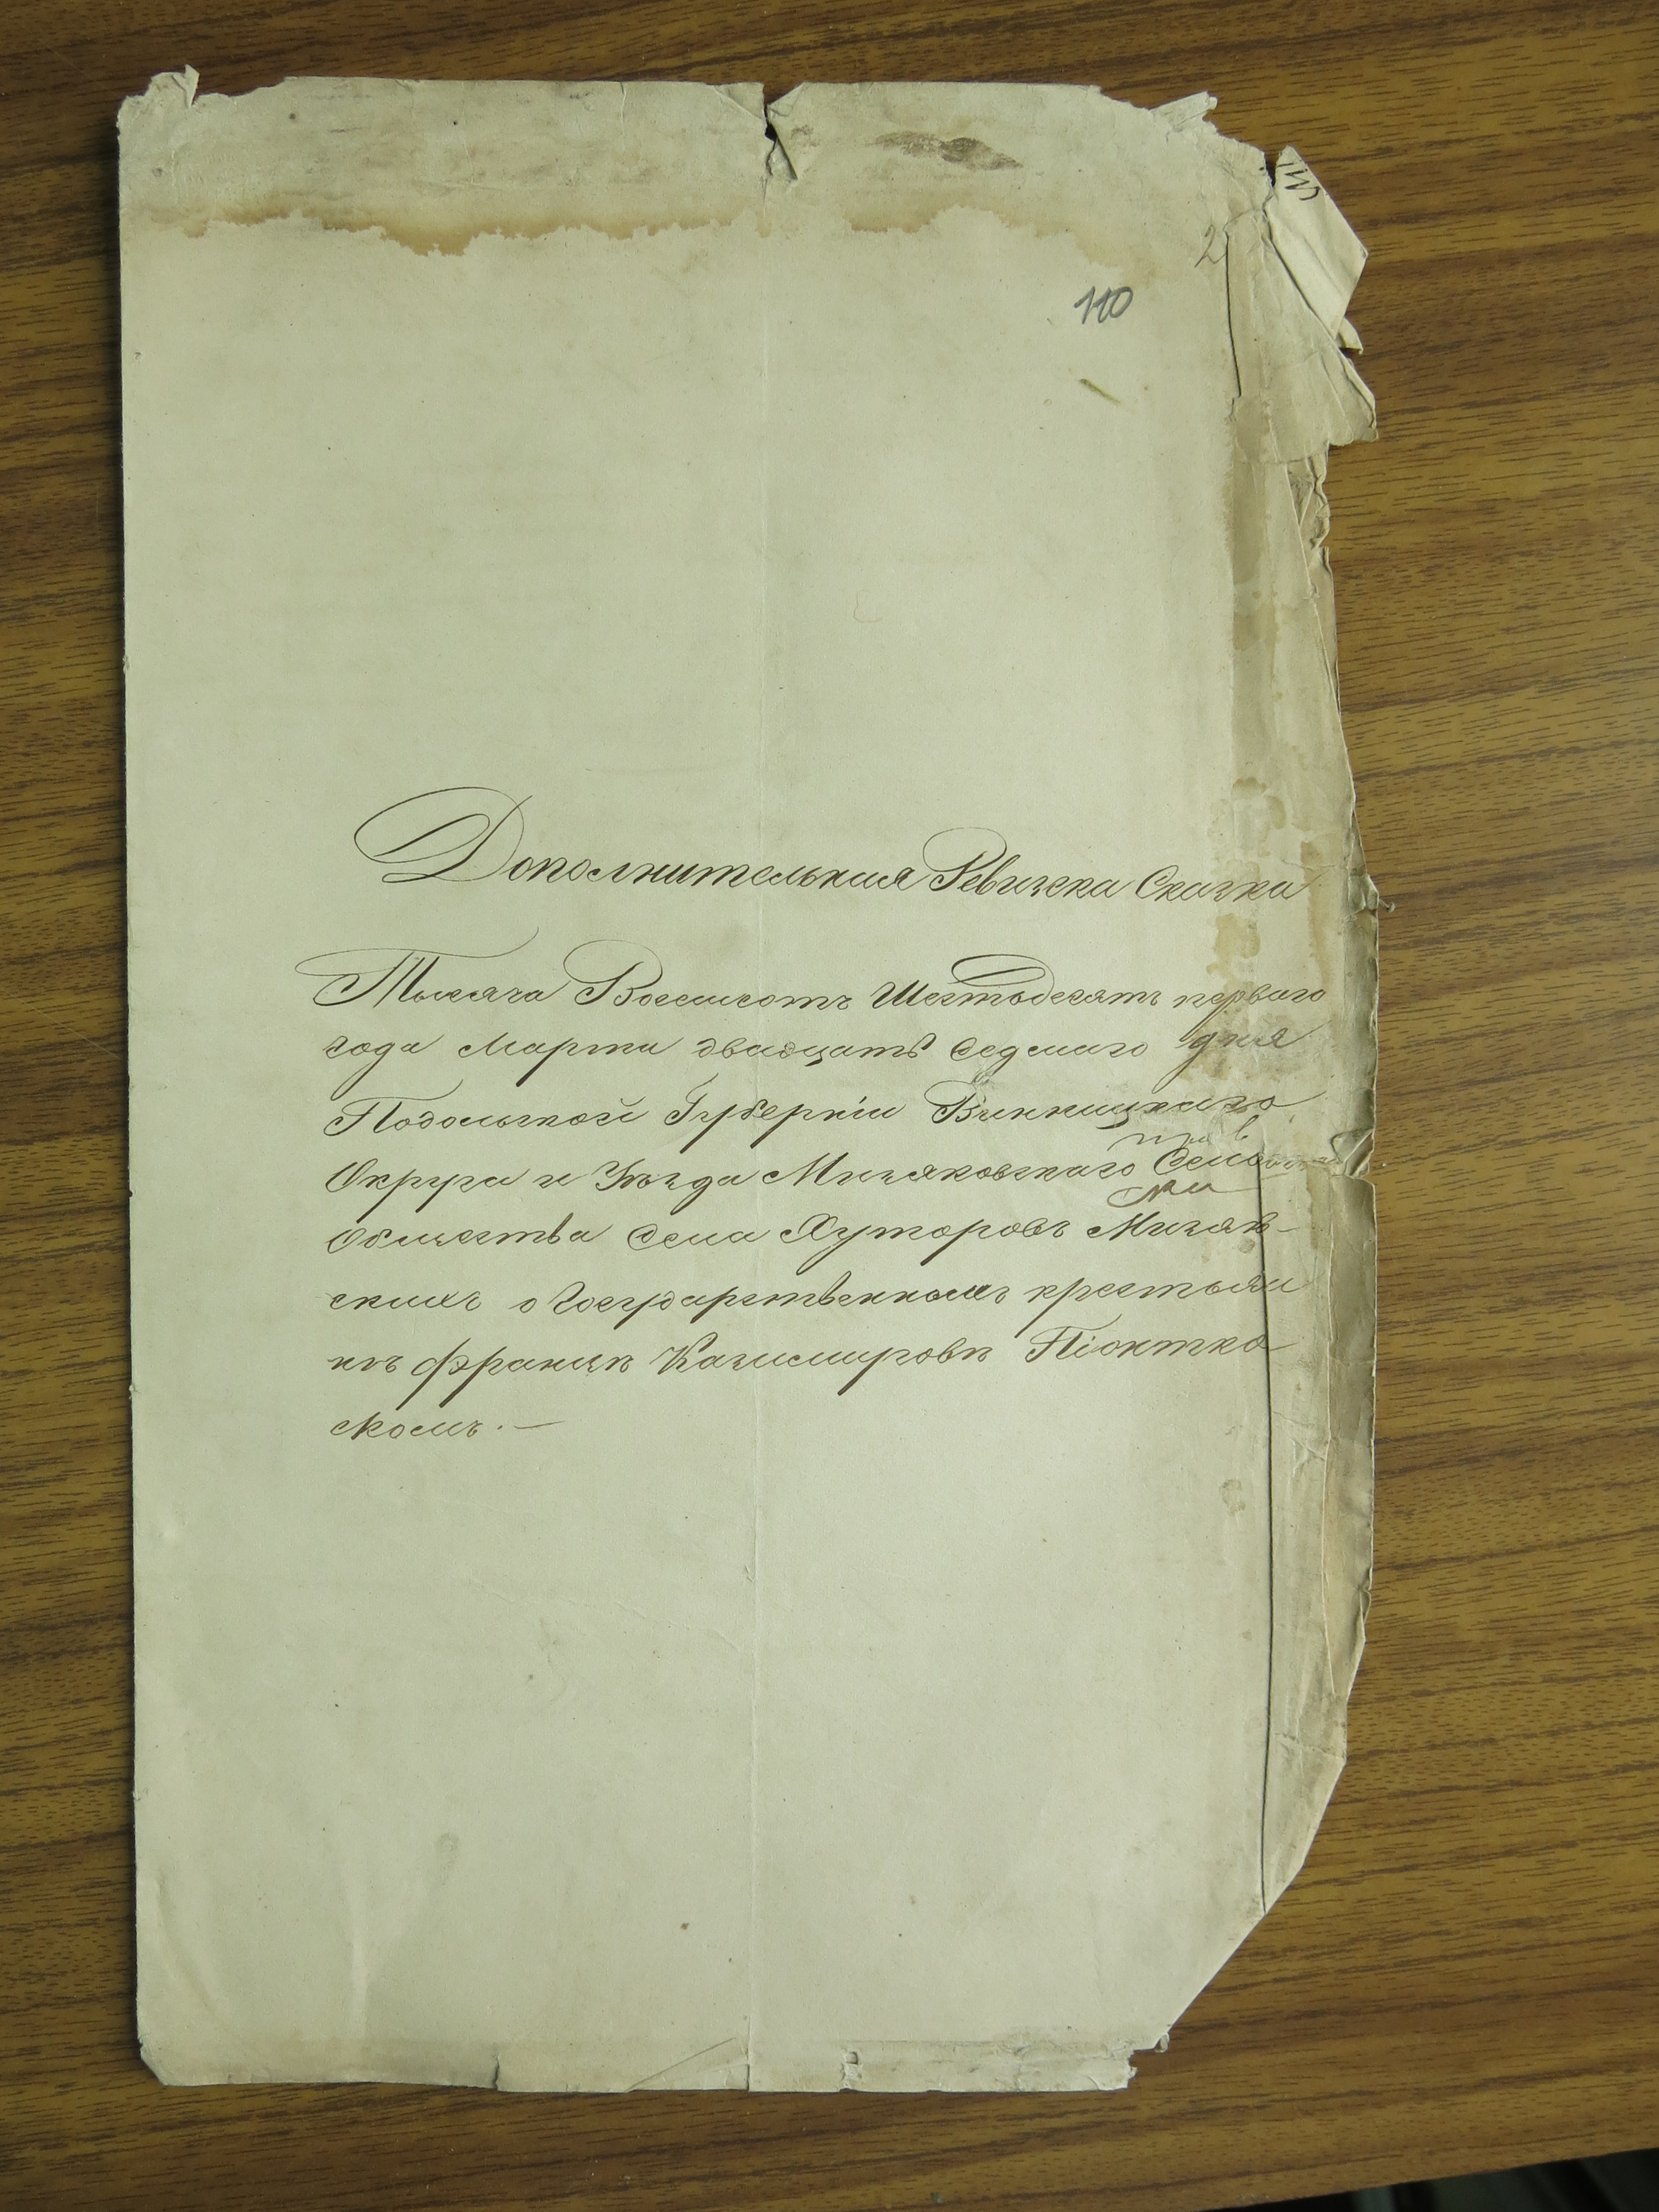 2
110
Дополнительная Ревизска Сказка
Тысяча Восемсотъ Шестьдесятъ перваго
года Марта двадцать седмаго дня
Подольской Губерніи Винницкаго
Округа и Уѣзда Мизяковскаго Сель
Общества Села Хуторовъ Мизяков-
скихъ о Государственномъ крестьяни
нѣ Францѣ Казимировѣ Піонтко
скомъ. —